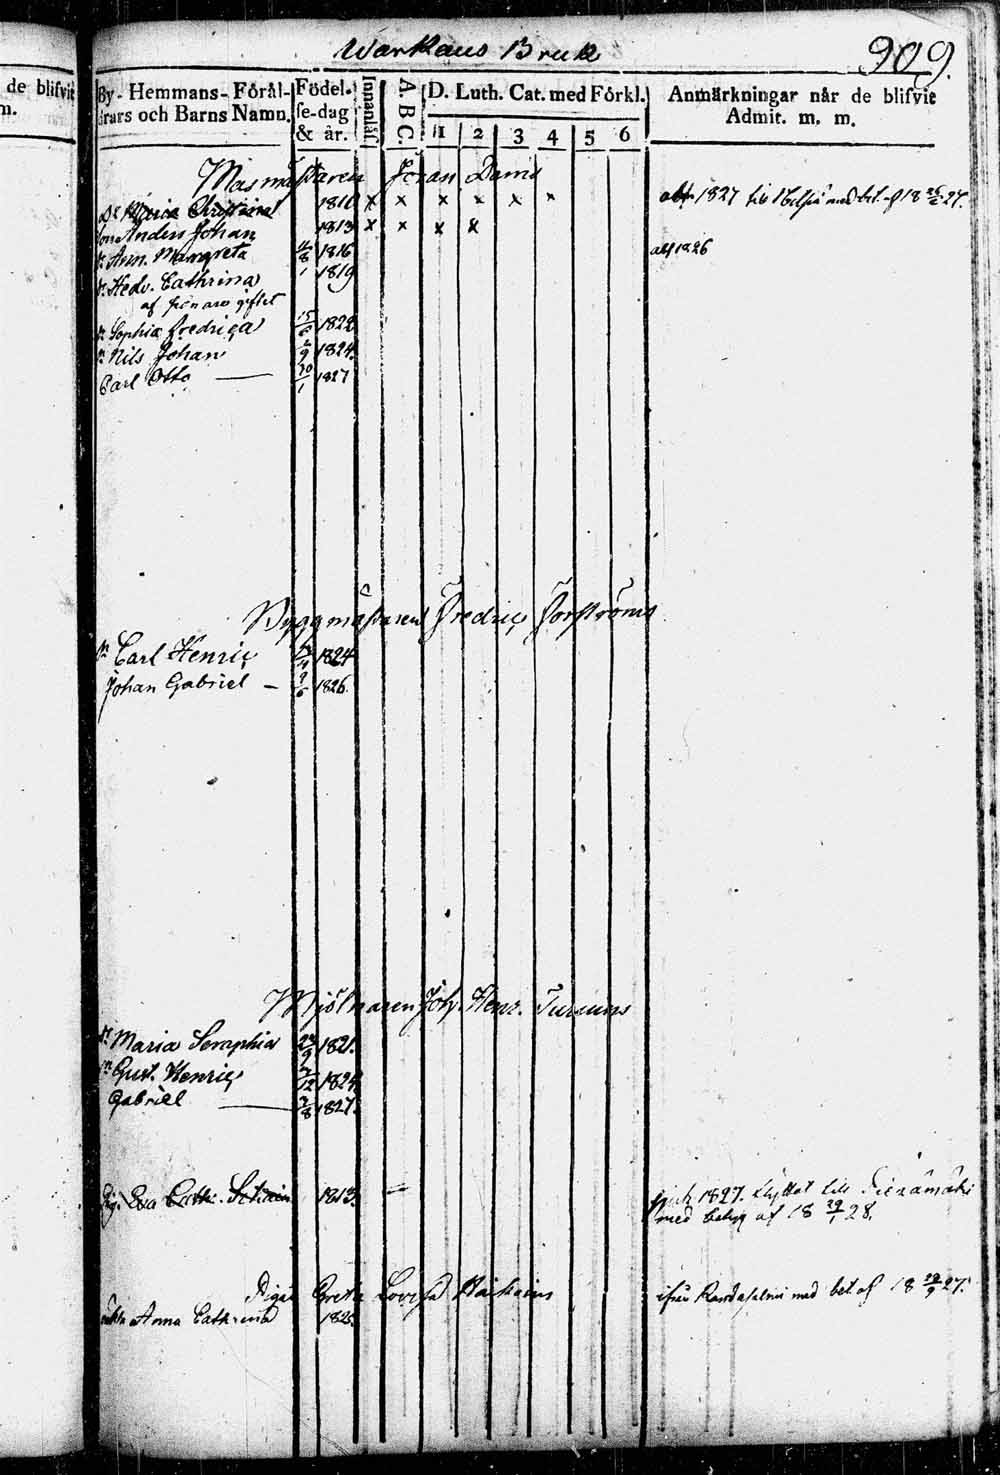 de blifvit
m.
Warkaus Bruk
909.
By- Hemmans- Förål-
drars och Barns Namn.
Födel-
se-dag
& år.
Innanläs.
A. B. C.
D. Luth. Cat. med Förkl.
1 2 3 4 5 6
Anmärkningar når de blifvit
Admit. m. m.
Masmästaren Johan Damis
Dr Maria Christina 1810 x x x x x x 1827 med bet. af 18 27.
Son Anders Johan 1813 x x x x
Dr. Ann. Margreta 1816 1826
Dr. Hedv. Cathrina 1 1819
af senare giftet
Dr Sophia Fredrica 15 1822
Sn Nils Johan 9 1824.
Carl Otto 20/1 1827
Byggmästaren Fredric Forströms
Sn Carl Henric 1824
Johan Gabriel 1826.
Mjölnaren Joh. Henr.
Dr Maria Seraphia 1821.
Sn Gust. Henric 12 1824
Gabriel 8 1827.
Pig. Eva Cath. 1813. 1827. flyttat till
med betyg af 18 29/1 28.
Pigan Greta Lovisa ifrån med bet. af 18 27.
Anna Cathrina 1825.